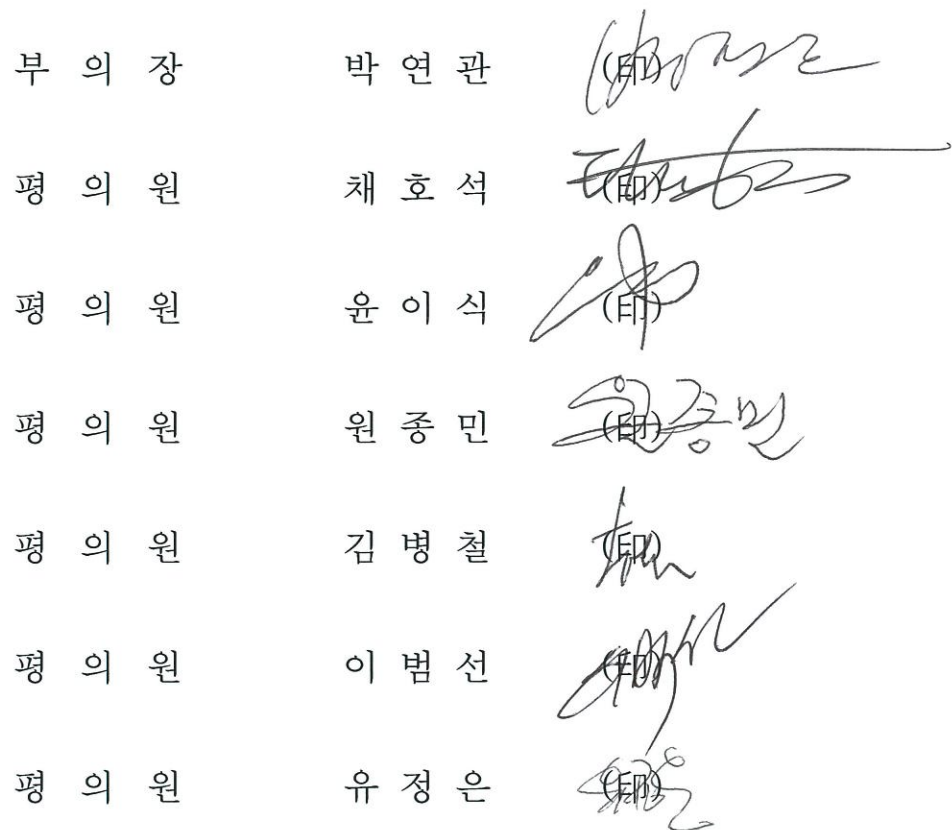 부 의 장 박 연 관 (印)
평 의 원 채 호 석 (印)
평 의 원 윤 이 식 (印)
평 의 원 원 종 민 (印) 원종민
평 의 원 김 병 철 (印)
평 의 원 이 범 선 (印)
평 의 원 유 정 은 (印)